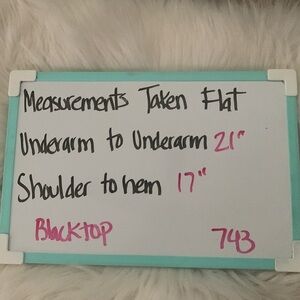 Measurements Taken Flat
Underarm to Underarm 21"
Shoulder to hem 17"
Blacktop 743